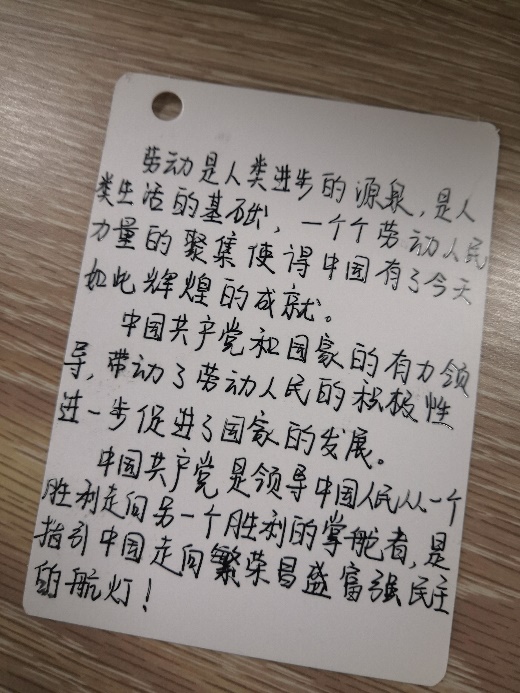 劳动是人类进步的源泉,是人
类生活的基础,一个个劳动人民
力量的聚集使得中国有了今天
如此辉煌的成就。
中国共产党和国家的有力领
导,带动了劳动人民的积极性
进一步促进了国家的发展。
中国共产党是领导中国人民从一个
胜利走向另一个胜利的掌舵者,是
指引中国走向繁荣昌盛富强民主
的航灯!